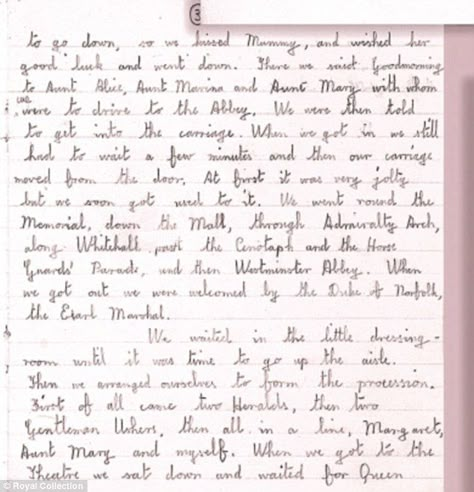 3
to go down, so we kissed Mummy, and wished her
good luck and went down. There we said Goodmorning
to Aunt Alice, Aunt Marina and Aunt Mary with whom
we
were to drive to the Abbey. We were then told
to get into the carriage. When we got in we still
had to wait a few minutes and then our carriage
moved from the door. At first it was very jolty
but we soon got used to it. We went round the
Memorial, down the Mall, through Admiralty Arch,
along Whitehall past the Cenotaph and the Horse
Guards' Parade, and then Westminster Abbey. When
we got out we were welcomed by the Duke of Norfolk,
the Earl Marshal.
We waited in the little dressing-
room until it was time to go up the aisle.
Then we arranged ourselves to form the procession.
First of all came two Heralds, then two
Gentleman Ushers, then all in a line, Margaret,
Aunt Mary and myself. When we got to the
Theatre we sat down and waited for Queen
© Royal Collection